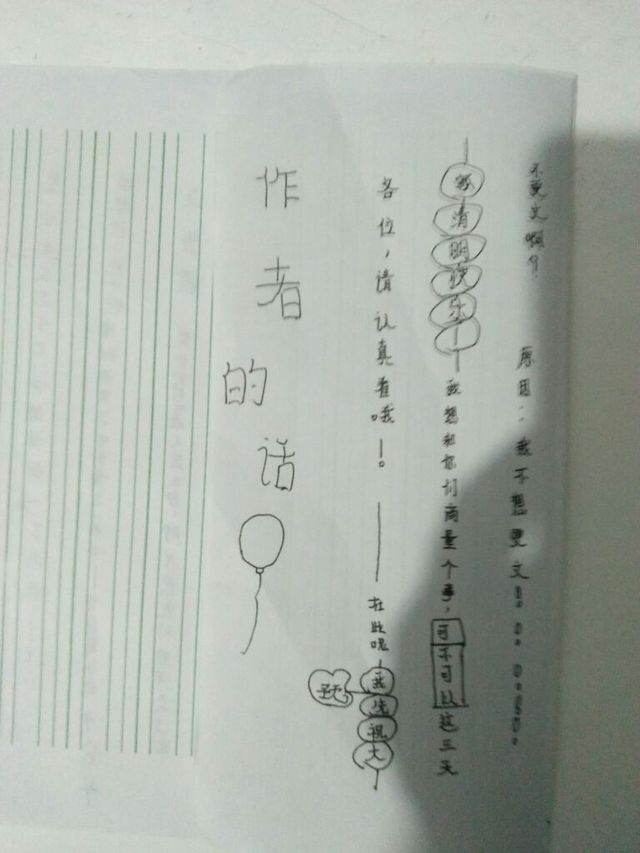 作者的话
各位，请认真看哦！。——在此呢我先祝大
家清明快乐！我想和你们商量个事，可不可以这三天
不更文啊？ 原因：我不想更文